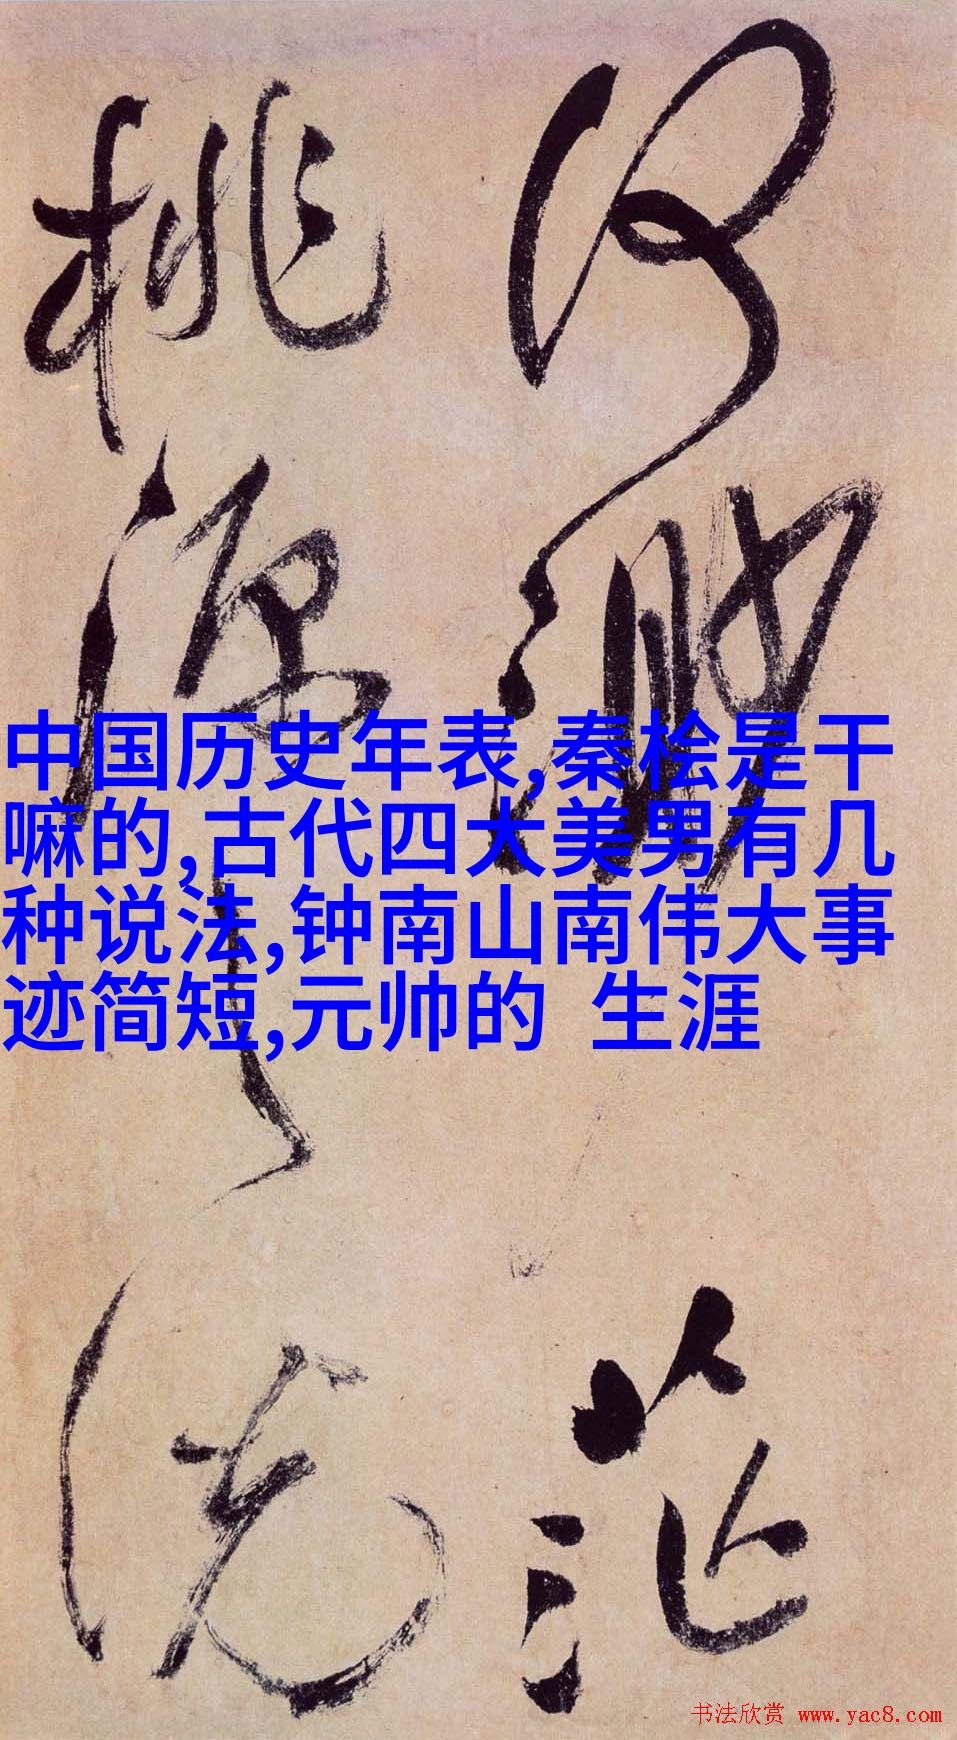 何渺茫
桃源之说
中国历史年表,秦桧是干
嘛的,古代四大美男有几
种说法,钟南山南伟大事
迹简短,元帅的 生涯
书法欣赏 www.yac8.com